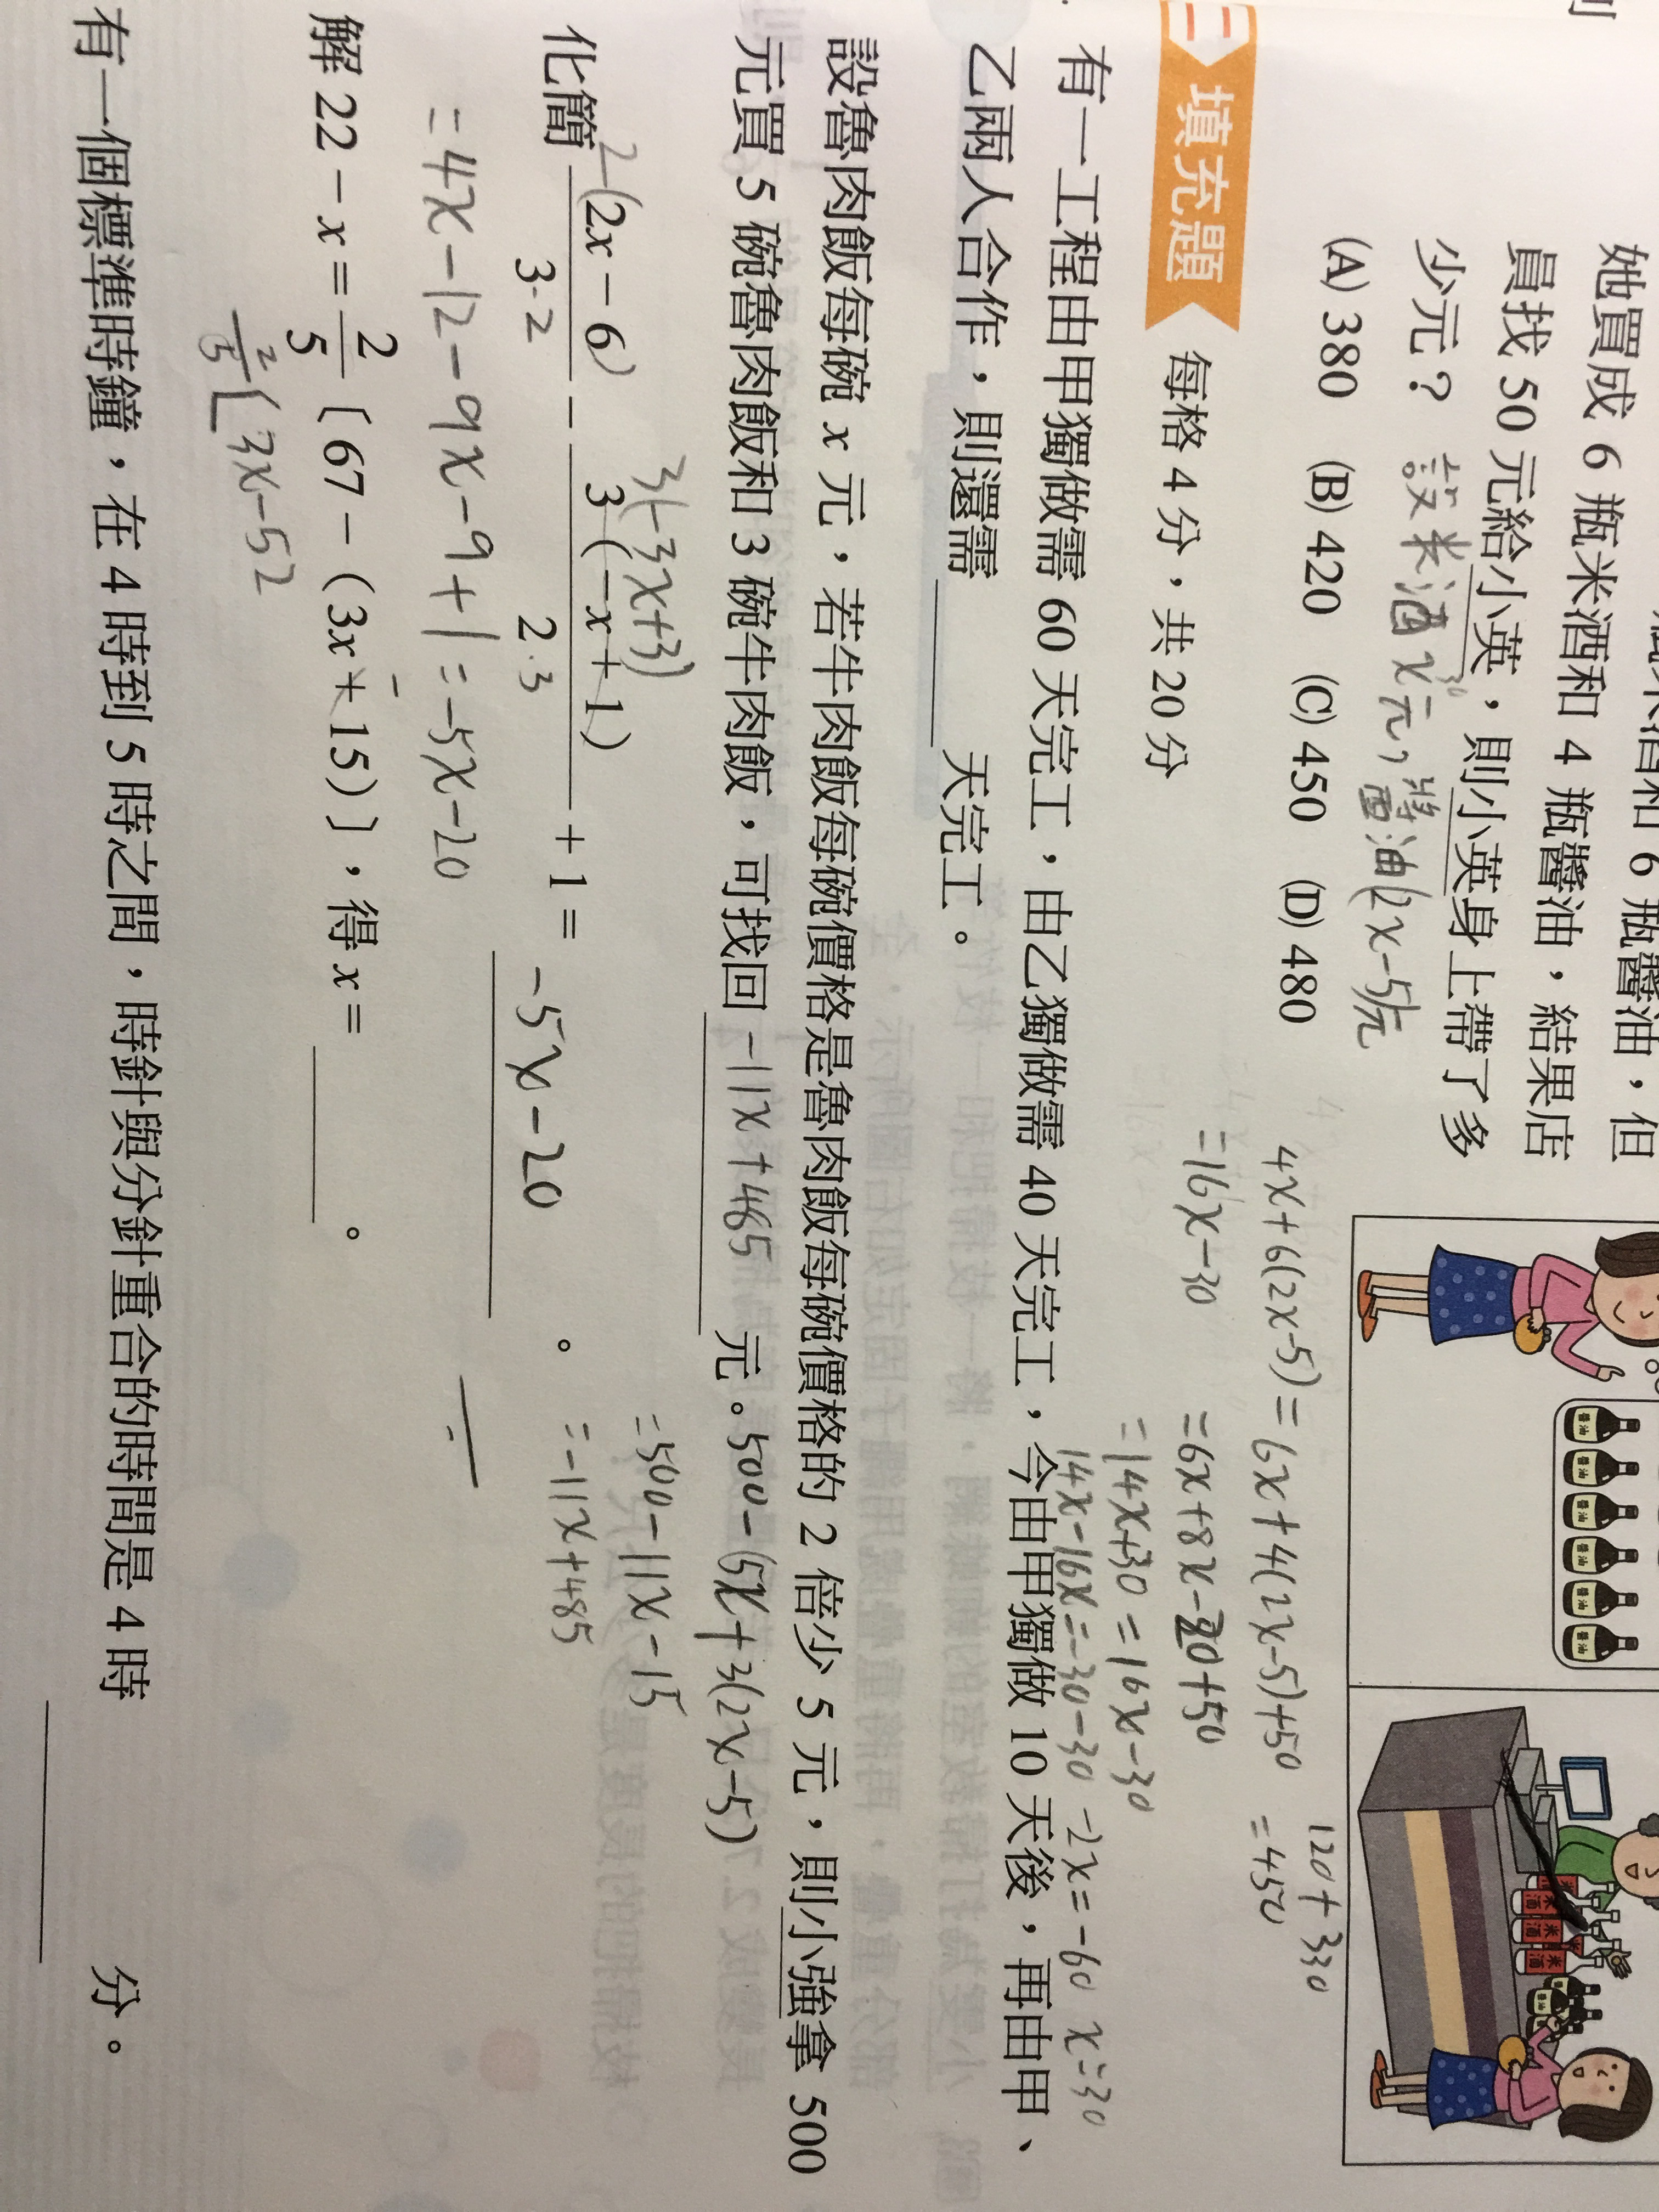 她買成 6 瓶米酒和 4 瓶醬油，結果店
員找 50 元給小英，則小英身上帶了多
少元？ 設米酒x元，醬油(2x-5)元
30
(A) 380 (B) 420 (C) 450 (D) 480
4x+6(2x-5)=6x+4(2x-5)+50
120+330
=450
=16x-30
=6x+8x-20+50
=14x+30=16x-30
14x-16x=-30-30 -2x=-60 x=30
三 填充題 每格 4 分，共 20 分
有一工程由甲獨做需 60 天完工，由乙獨做需 40 天完工，今由甲獨做 10 天後，再由甲、
乙兩人合作，則還需 天完工。
設魯肉飯每碗 x 元，若牛肉飯每碗價格是魯肉飯每碗價格的 2 倍少 5 元，則小強拿 500
元買 5 碗魯肉飯和 3 碗牛肉飯，可找回 -11x+485 元。500-(5x+3(2x-5)
=500-11x-15
=-11x+485
2-(
3(-3x+3)
化簡 2x-6) / 3·2 - 3(-x+1) / 2·3 + 1 = -5x-20 。
=4x-12-9x-9+1=-5x-20
解 22-x=2/5〔67-(3x+15)〕，得 x= 。
-
2/5[3x-52
有一個標準時鐘，在 4 時到 5 時之間，時針與分針重合的時間是 4 時 分。
米酒
米酒
米酒
米酒
醬油
醬油
醬油
醬油
醬油
醬油